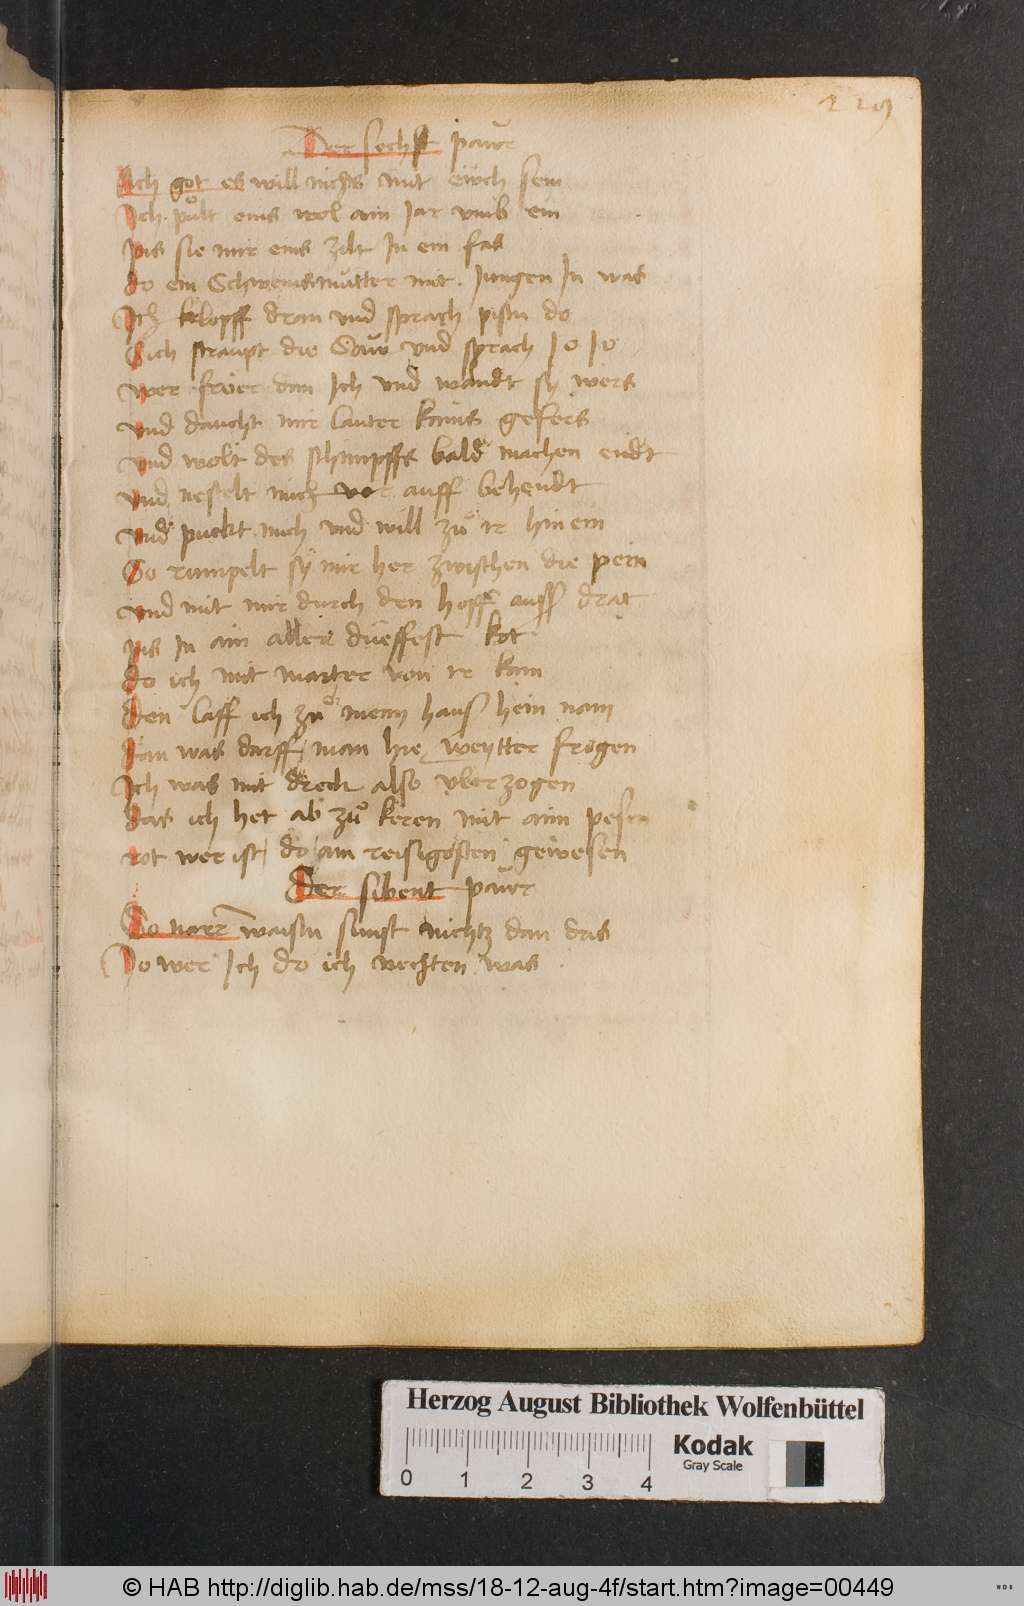 Der sechst pawr
Ach got es will nichts mit ewch sein
Ich pult eins wol ain Jar vmb ein
pis sie mir eins zilt In ein fas
do ein Schweinsmutter mit Jungen In was
Ich klopff dran vnd sprach pistu do
Sich straupt die Saw vnd sprach Jo Jo
wer froer dan Ich vnd wandt sy wers
vnd daucht mir lauter kains gefers
vnd wolt des schimpffs bald machen endt
vnd nestelt mich vor auff behendt
vnd puckt mich vnd will zu ir hinein
So rumpelt sy mir her zwischen die pein
vnd mit mir durch den hoff auss drat
pis In ain aller dueffest kot
do ich mit marter von ir kam
Den laff ich zu meim haus hein nam
Dan was darff man hie weytter frogen
Ich was mit dreck also vberzogen
das ich het ab zu keren mit aim pesen
rot wer ist do am reisigosten gewesen
Der sibent pawr
Do narr waistu sunst nichtz dan dris
Do wer Ich do ich vechten was
Herzog August Bibliothek Wolfenbüttel
0 1 2 3 4
Kodak
Gray Scale
© HAB http://diglib.hab.de/mss/18-12-aug-4f/start.htm?image=00449